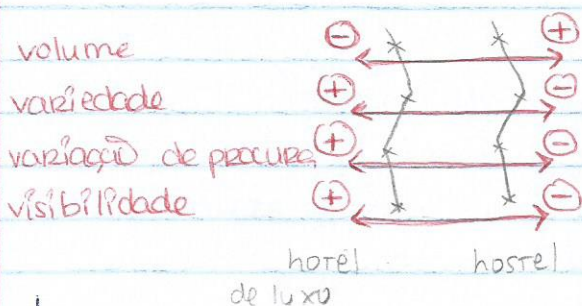 volume - +
variedade + -
variação de procura + -
visibilidade + -
hotel hostel
de luxo